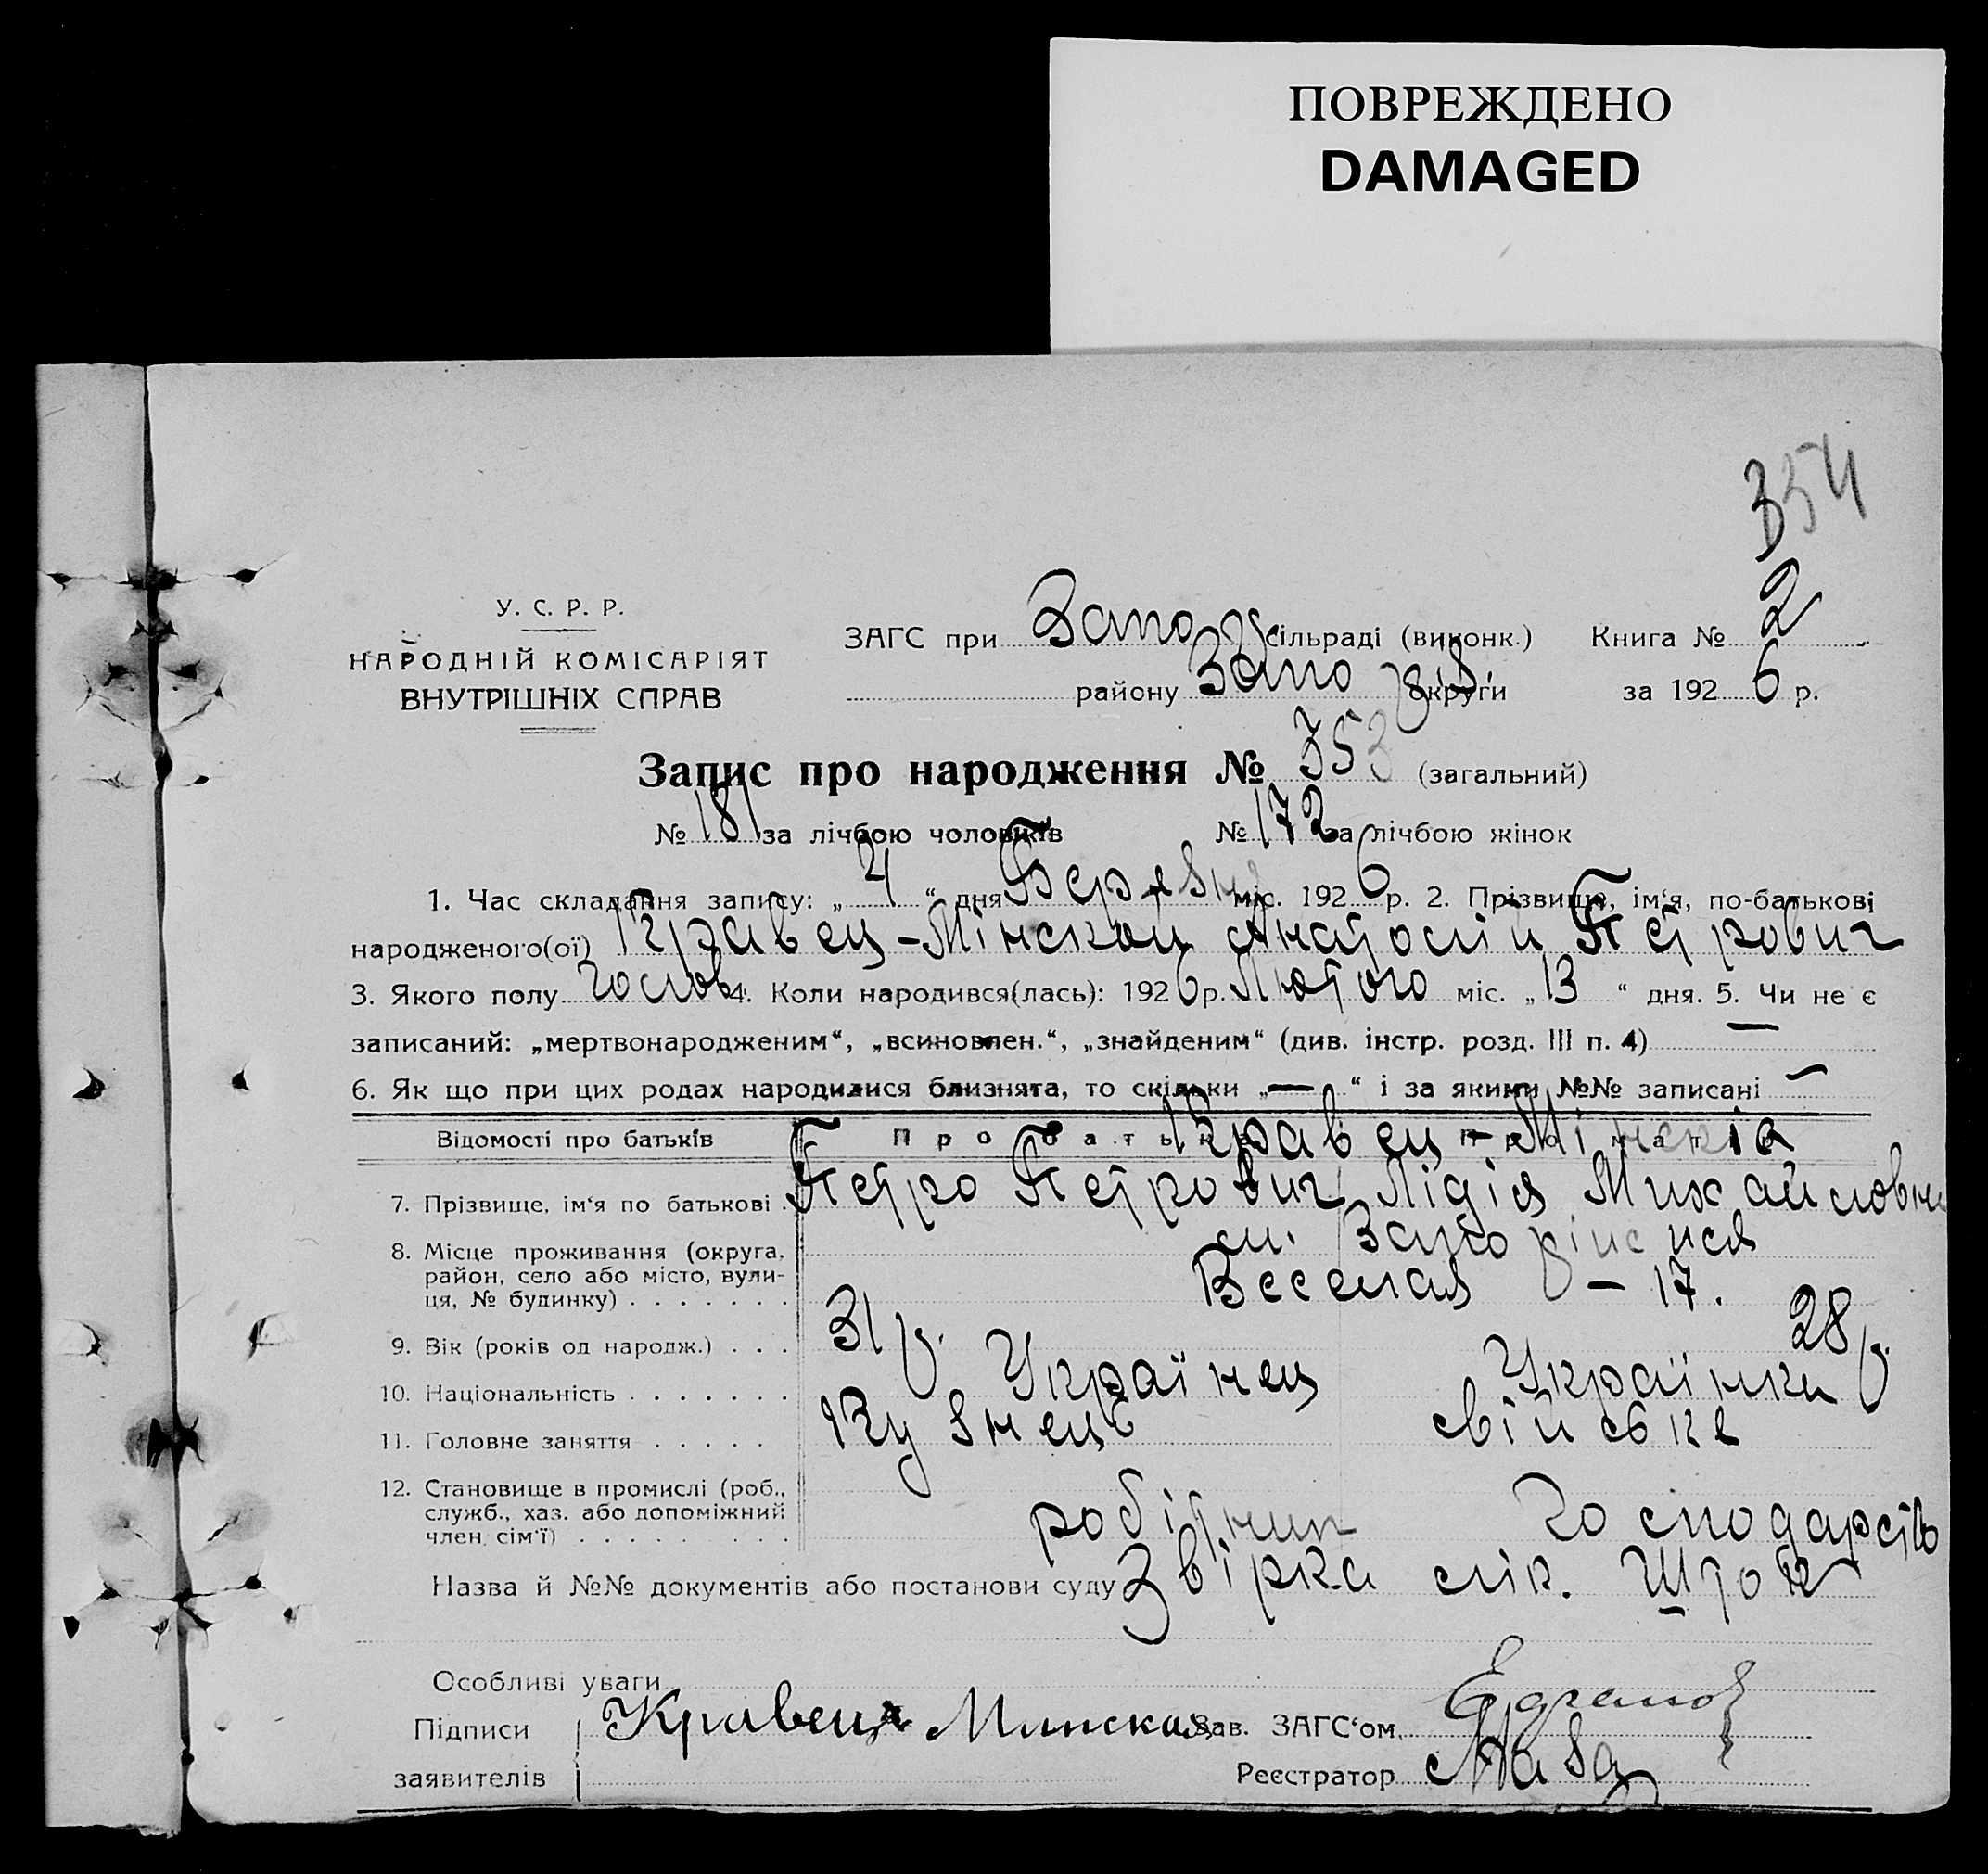 ПОВРЕЖДЕНО
DAMAGED
354
У. С. Р. Р.
НАРОДНІЙ КОМІСАРІЯТ
ВНУТРІШНІХ СПРАВ
ЗАГС при Запо сільраді (виконк.) Книга № 2
району Запо округи за 192 6 р.
Запис про народження № 353 (загальний)
№ 181 за лічбою чоловіків № 172 за лічбою жінок
1. Час складання запису: „ 4 “ дня Березня міс. 192 6 р. 2. Прізвище, ім‘я, по-батькові
народженого(ої) Кравец-Мінской Анатолій Петрович
3. Якого полу чолов. 4. Коли народився(лась): 192 6 р. Лютого міс. „ 13 “ дня. 5. Чи не є
записаний: „мертвонародженим“, „всиновлен.“, „знайденим“ (див. інстр. розд. III п. 4) —
6. Як що при цих родах народилися близнята, то скільки „ — “ і за якими №№ записані —
Відомості про батьків Про батька Про матір
Кравец-Мінскія
7. Прізвище, ім‘я по батькові . Петро Петрович Лідія Михайловна
8. Місце проживання (округа, район, село або місто, вулиця, № будинку) . . . . . . .
м. Запоріжжя
Веселая – 17.
9. Вік (років од народж.) . . . 31 р. 28 р.
10. Національність . . . . . . . Українец Українка
11. Головне заняття . . . . . Кузнець свійське
12. Становище в промислі (роб., служб., хаз. або допоміжний член. сім‘ї) . . . . . . . . .
робітник господарств
Назва й №№ документів або постанови суду Звірка лік.
Особливі уваги
Підписи Кравец Минская Зав. ЗАГС‘ом
заявителів Реєстратор